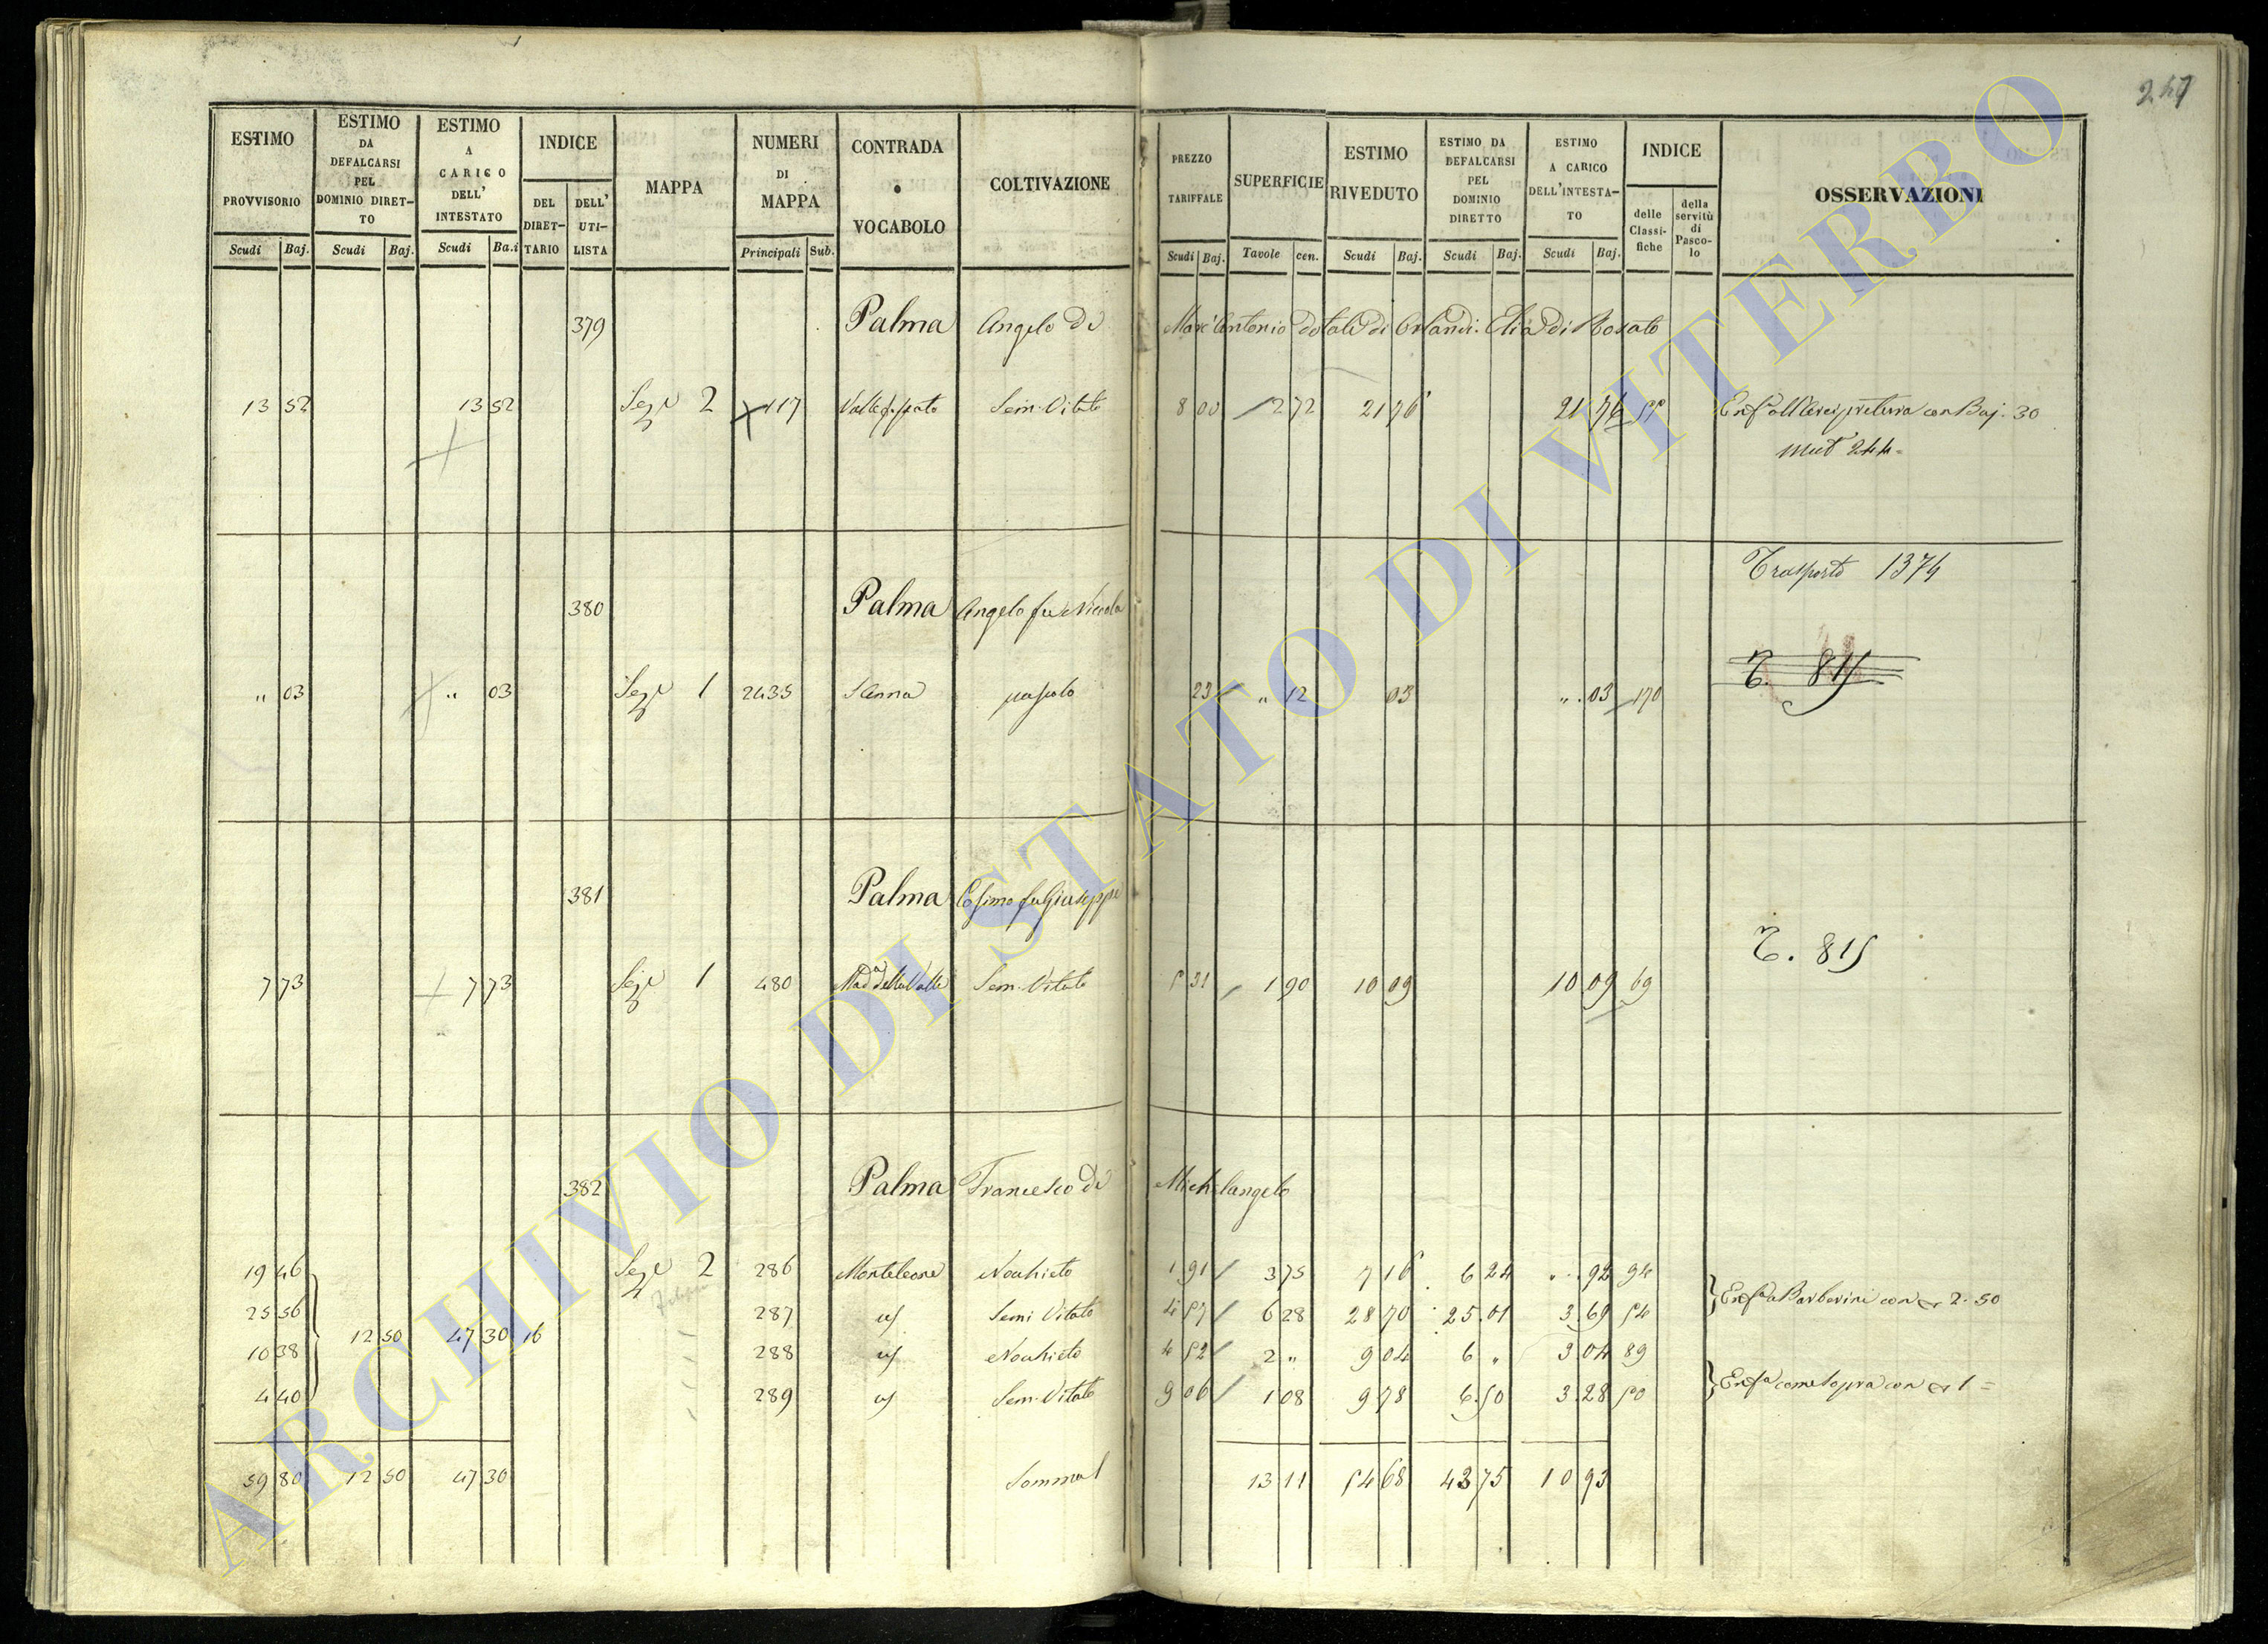 247
ESTIMO PROVVISORIO Scudi Baj.
ESTIMO DA DEFALCARSI PEL DOMINIO DIRET-TO Scudi Baj.
ESTIMO A CARICO DELL' INTESTATO Scudi Ba.i
INDICE DEL DIRET-TARIO DELL' UTI-LISTA
MAPPA
NUMERI DI MAPPA Principali Sub.
CONTRADA o VOCABOLO
COLTIVAZIONE
PREZZO TARIFFALE Scudi Baj.
SUPERFICIE Tavole cen.
ESTIMO RIVEDUTO Scudi Baj.
ESTIMO DA DEFALCARSI PEL DOMINIO DIRETTO Scudi Baj.
ESTIMO A CARICO DELL'INTESTA-TO Scudi Baj.
INDICE delle Classi-fiche della servitù di Pasco-lo
OSSERVAZIONI
379 Palma Angelo di Marc'Antonio dotale di Orlandi Elia di Rosato
13 52 13 52 Sez.e 2 117 Sem. Vitato 8 00 2 72 21 76 21 76 con Baj. 30
mut 244
Trasporto 1374
380 Palma Angelo fu Niccola
T. 815
" 03 " 03 Sez.e 1 2435 S Anna pascolo 23 " 12 03 " 03 170
381 Palma Cosimo fu Giuseppe
T. 815
7 73 7 73 Sez.e 1 480 Mad.a della Valle Sem. Vitato 5 31 1 90 10 09 10 09 69
382 Palma Francesco di Michelangelo
19 46 Sez.e 2 286 Monteleone Nochieto 1 91 3 75 7 16 6 24 " 92 94
25 56 287 Semi Vitato 4 57 6 28 28 70 25 01 3 69 54 Enf.a a Barberini con 2.50
12 50 47 30 16
10 38 288 Nochieto 4 52 2 " 9 04 6 " 3 04 89
4 40 289 Sem. Vitato 9 06 1 08 9 78 6 50 3 28 50 Enf.a come sopra con 1 =
59 80 12 50 47 30 Somma 13 11 54 68 43 75 10 93
ARCHIVIO DI STATO DI VITERBO